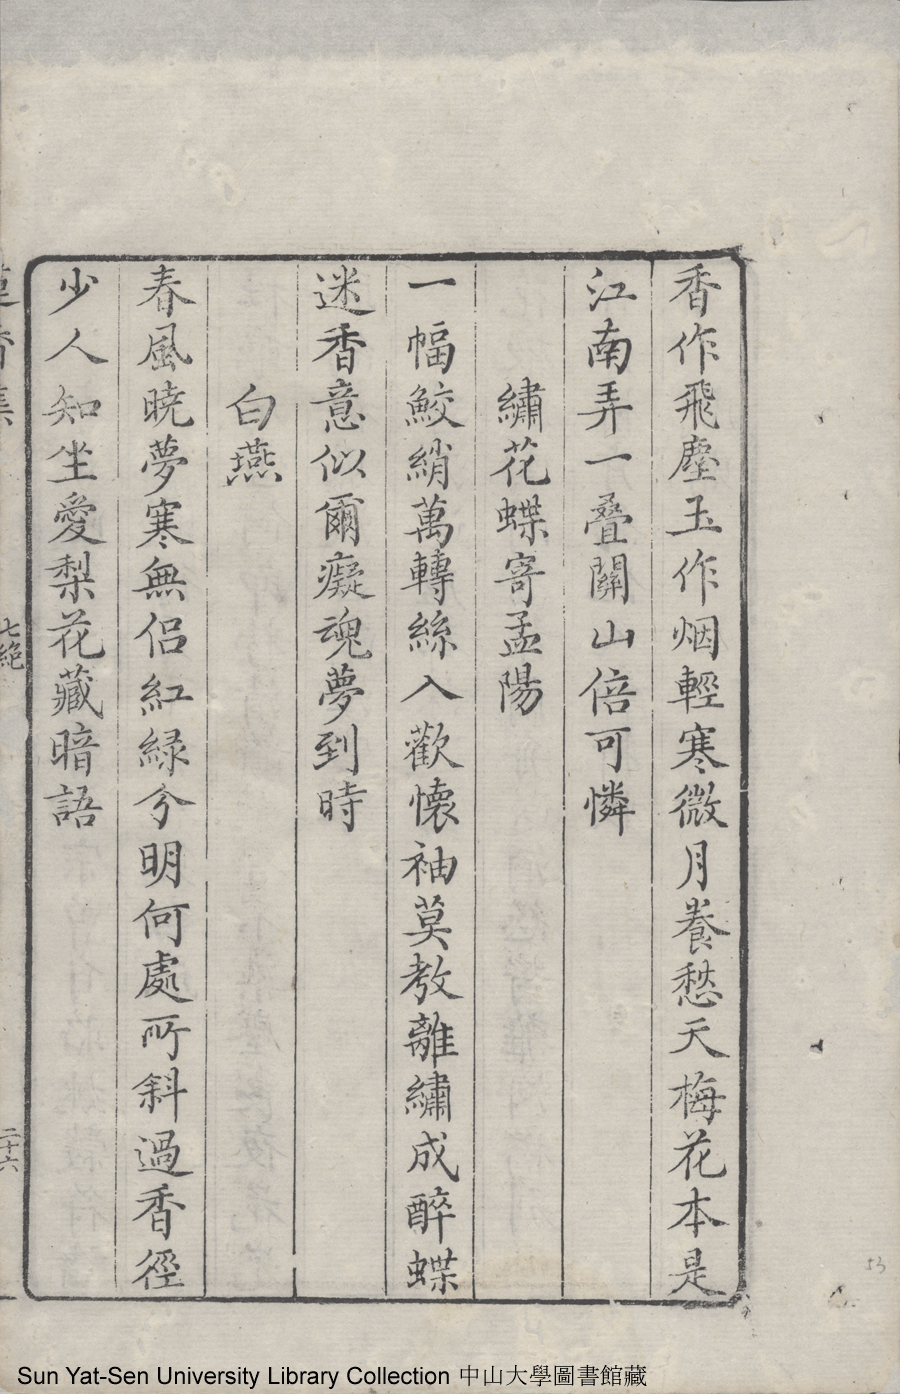 香作飛塵玉作烟輕寒微月養愁天梅花本是
江南弄一叠關山倍可憐
繡花蝶寄孟陽
一幅鮫綃萬轉絲入歡懷袖莫教離繡成醉蝶
迷香意似爾癡魂夢到時
白燕
春風曉夢寒無侶紅緑兮明何處所斜過香徑
少人知坐愛梨花藏暗語
七絕
二十六
53
Sun Yat-Sen University Library Collection 中山大學圖書館藏